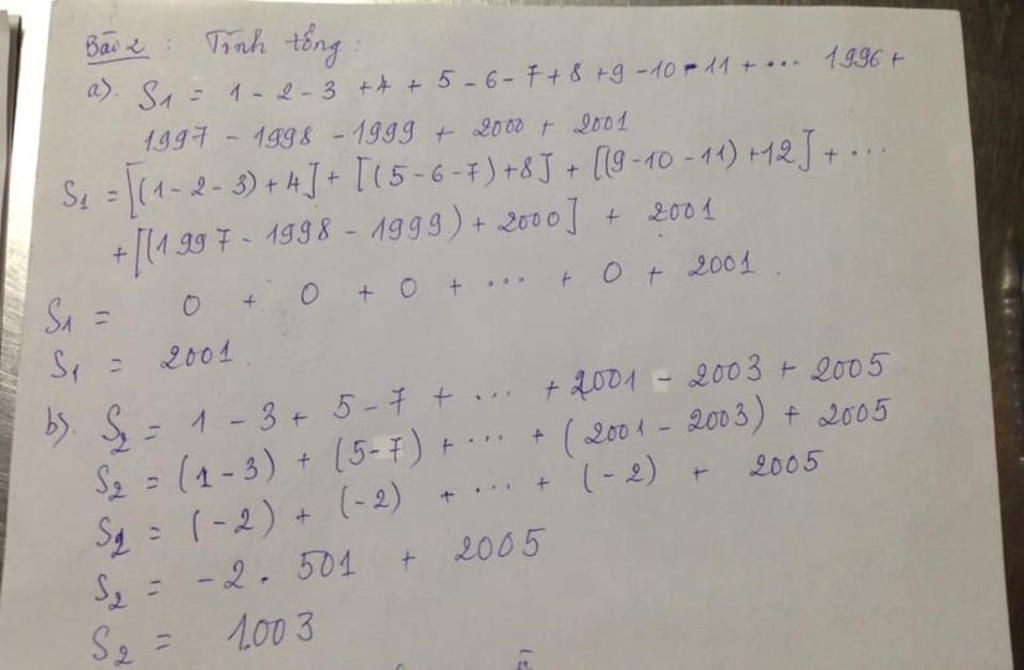 Bài 2 : Tính tổng :
a). S1 = 1 - 2 - 3 + 4 + 5 - 6 - 7 + 8 + 9 - 10 - 11 + ... 1996 +
1997 - 1998 - 1999 + 2000 + 2001
S1 = [(1 - 2 - 3) + 4] + [(5 - 6 - 7) + 8] + [(9 - 10 - 11) + 12] + ...
+ [(1997 - 1998 - 1999) + 2000] + 2001
S1 = 0 + 0 + 0 + ... + 0 + 2001.
S1 = 2001.
b). S2 = 1 - 3 + 5 - 7 + ... + 2001 - 2003 + 2005
S2 = (1 - 3) + (5 - 7) + ... + (2001 - 2003) + 2005
S2 = (-2) + (-2) + ... + (-2) + 2005
S2 = -2 . 501 + 2005
S2 = 1.003